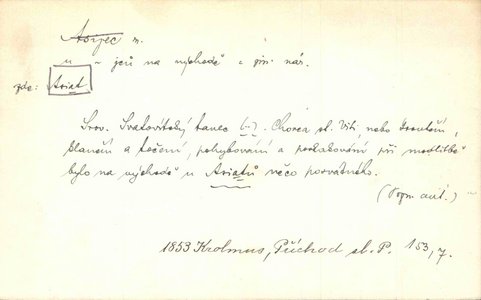 Asijec m.
u – jeů na východě a jin. nár.
zde: Asiat
Srov. Svatovítský tanec (–) . Chorea st. Viti, nebo kroucení,
klanění a točení, pohybování a poskakování při modlitbě
bylo na východě u Asiatů něco posvátného.
(Pozn. aut.)
1853 Krolmus, Příchod sl. P. 153, 7.